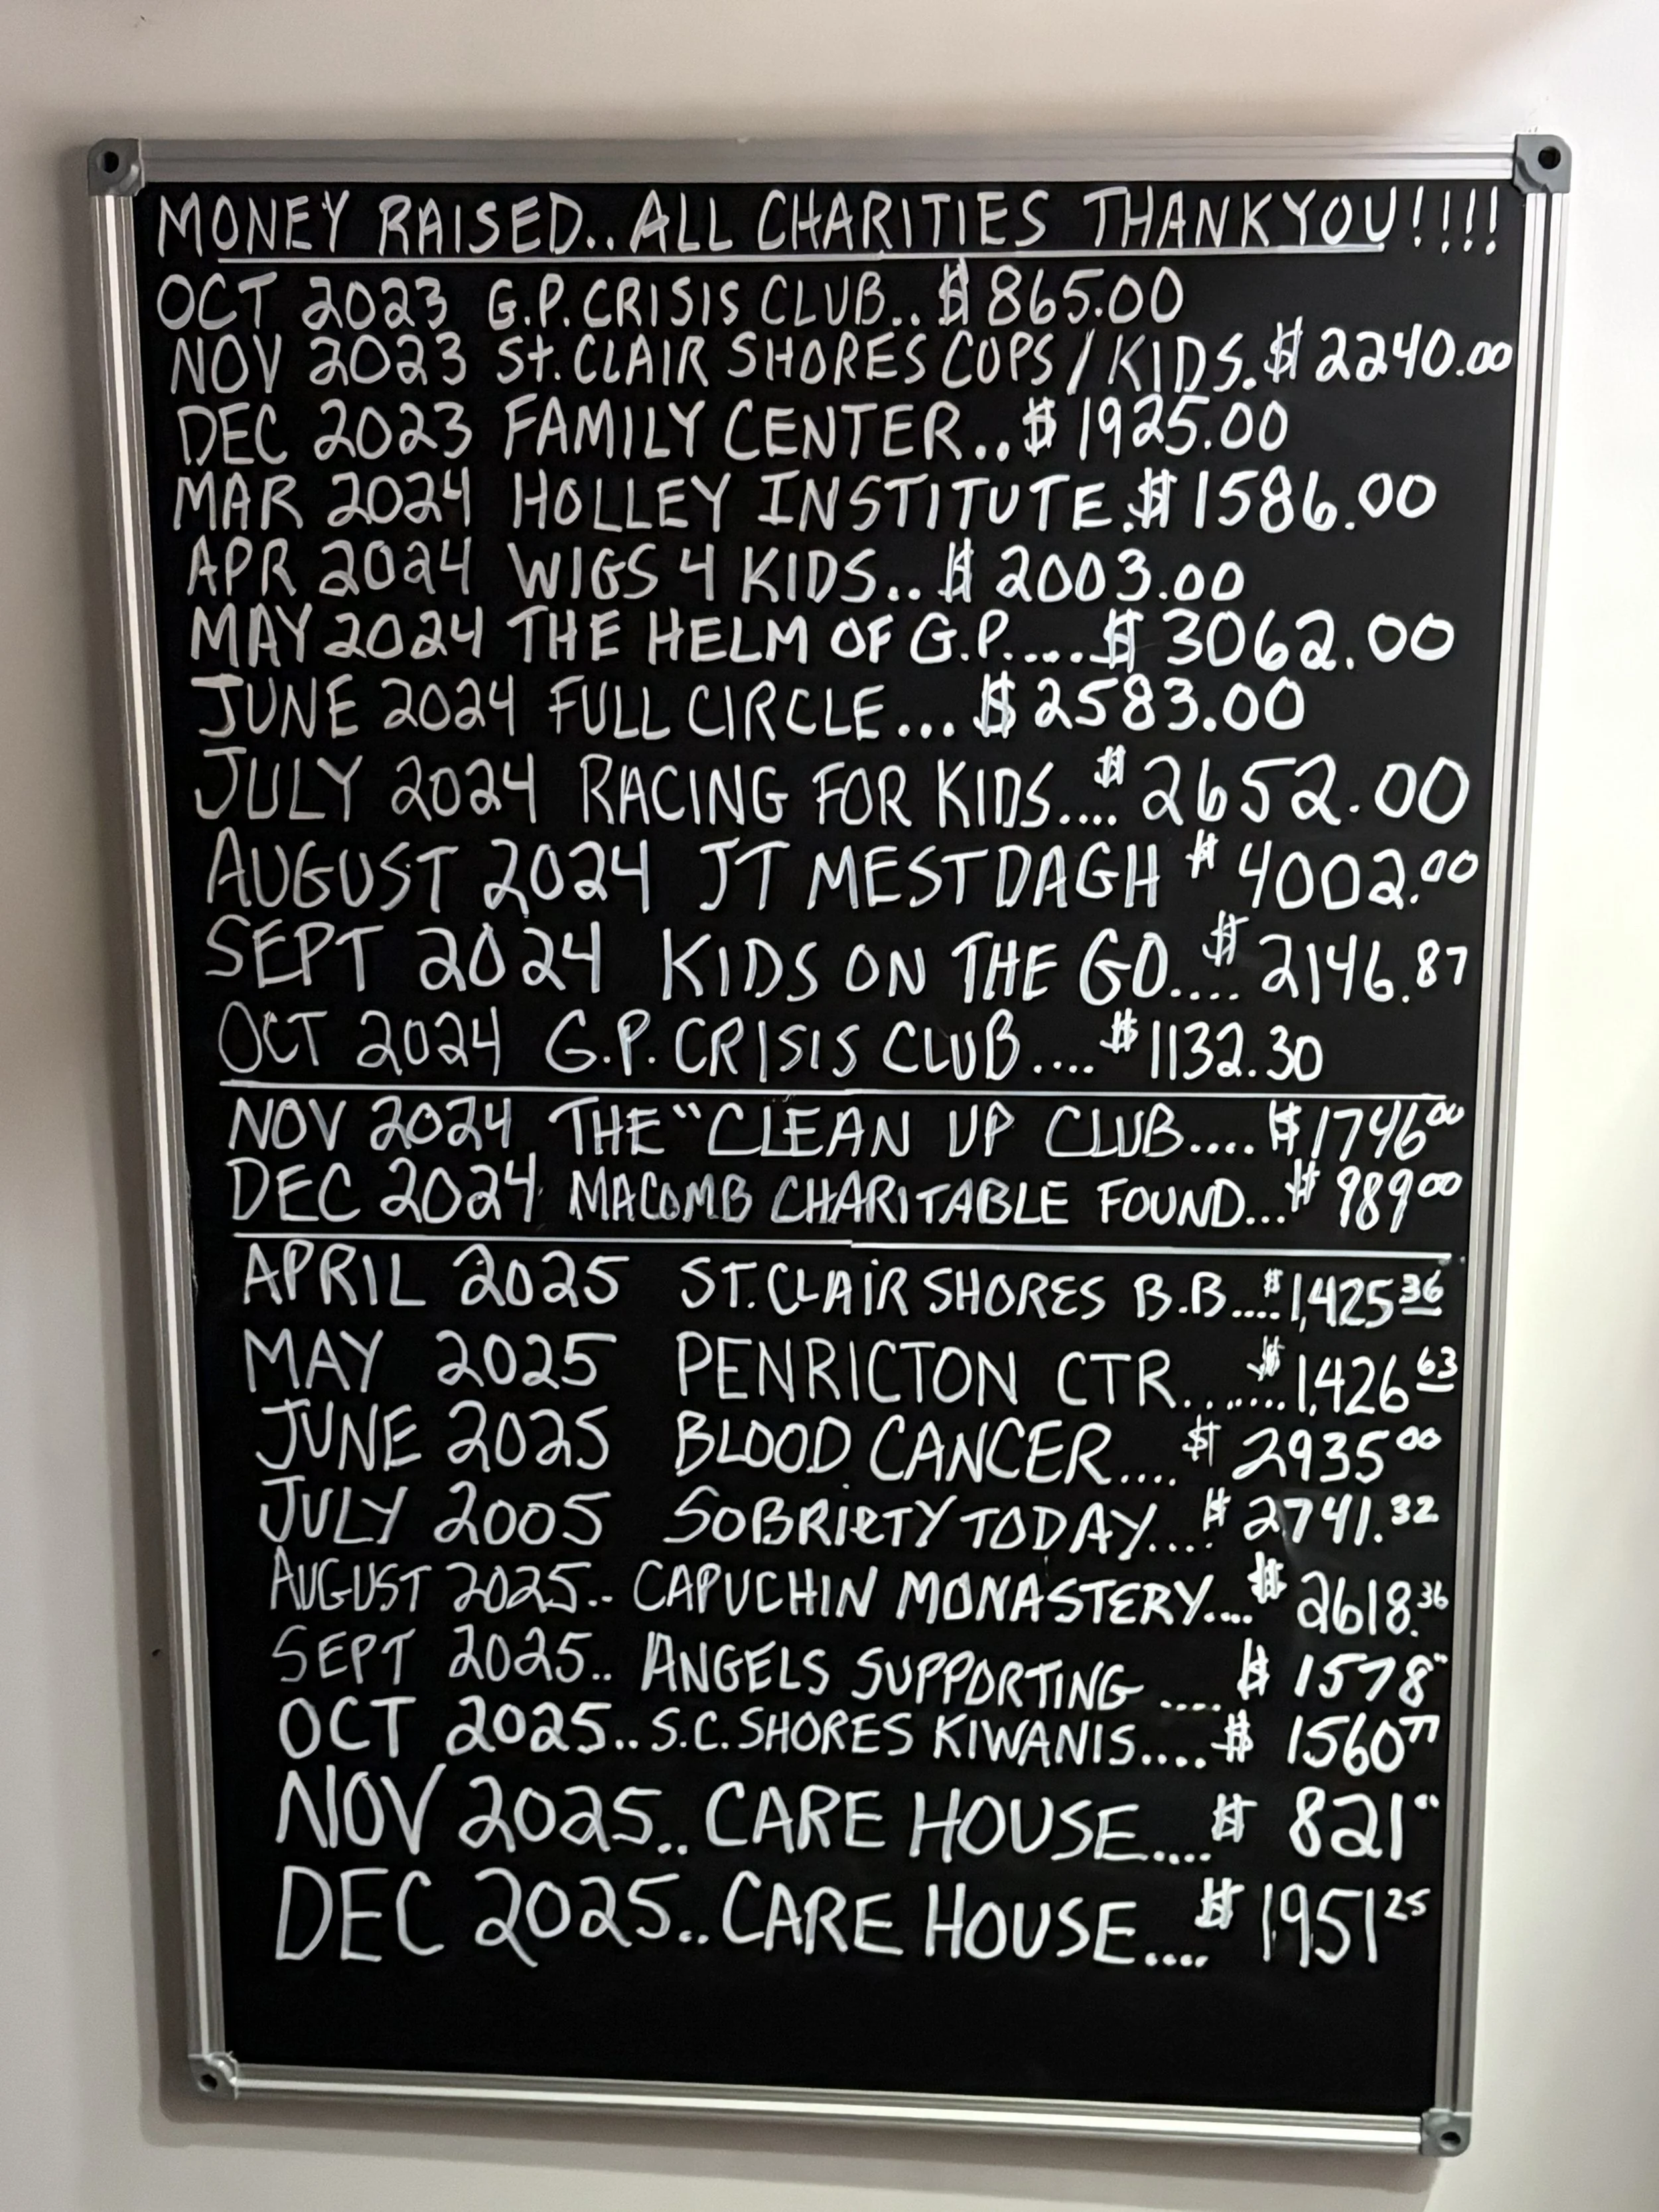 MONEY RAISED..ALL CHARITIES THANKYOU!!!!
OCT 2023 G.P.CRISIS CLUB..$865.00
NOV 2023 St.CLAIR SHORES COPS/KIDS.$2240.00
DEC 2023 FAMILY CENTER..$1925.00
MAR 2024 HOLLEY INSTITUTE.$1586.00
APR 2024 WIGS 4 KIDS..$2003.00
MAY 2024 THE HELM OF G.P.....$3062.00
JUNE 2024 FULL CIRCLE...$2583.00
JULY 2024 RACING FOR KIDS....$2652.00
AUGUST 2024 JT MESTDAGH $4002.00
SEPT 2024 KIDS ON THE GO....$2146.87
OCT 2024 G.P.CRISIS CLUB....$1132.30
NOV 2024 THE "CLEAN UP CLUB....$1746 00
DEC 2024 MACOMB CHARITABLE FOUND...$989 00
APRIL 2025 ST.CLAIR SHORES B.B....$1,425 36
MAY 2025 PENRICTON CTR.......$1,426 63
JUNE 2025 BLOOD CANCER....$2935 00
JULY 2005 SOBRIETY TODAY....$2741.32
AUGUST 2025.. CAPUCHIN MONASTERY....$2618.36
SEPT 2025.. ANGELS SUPPORTING ....$1578"
OCT 2025..S.C.SHORES KIWANIS....$1560 77
NOV 2025..CARE HOUSE....$821"
DEC 2025..CARE HOUSE....$1951 25